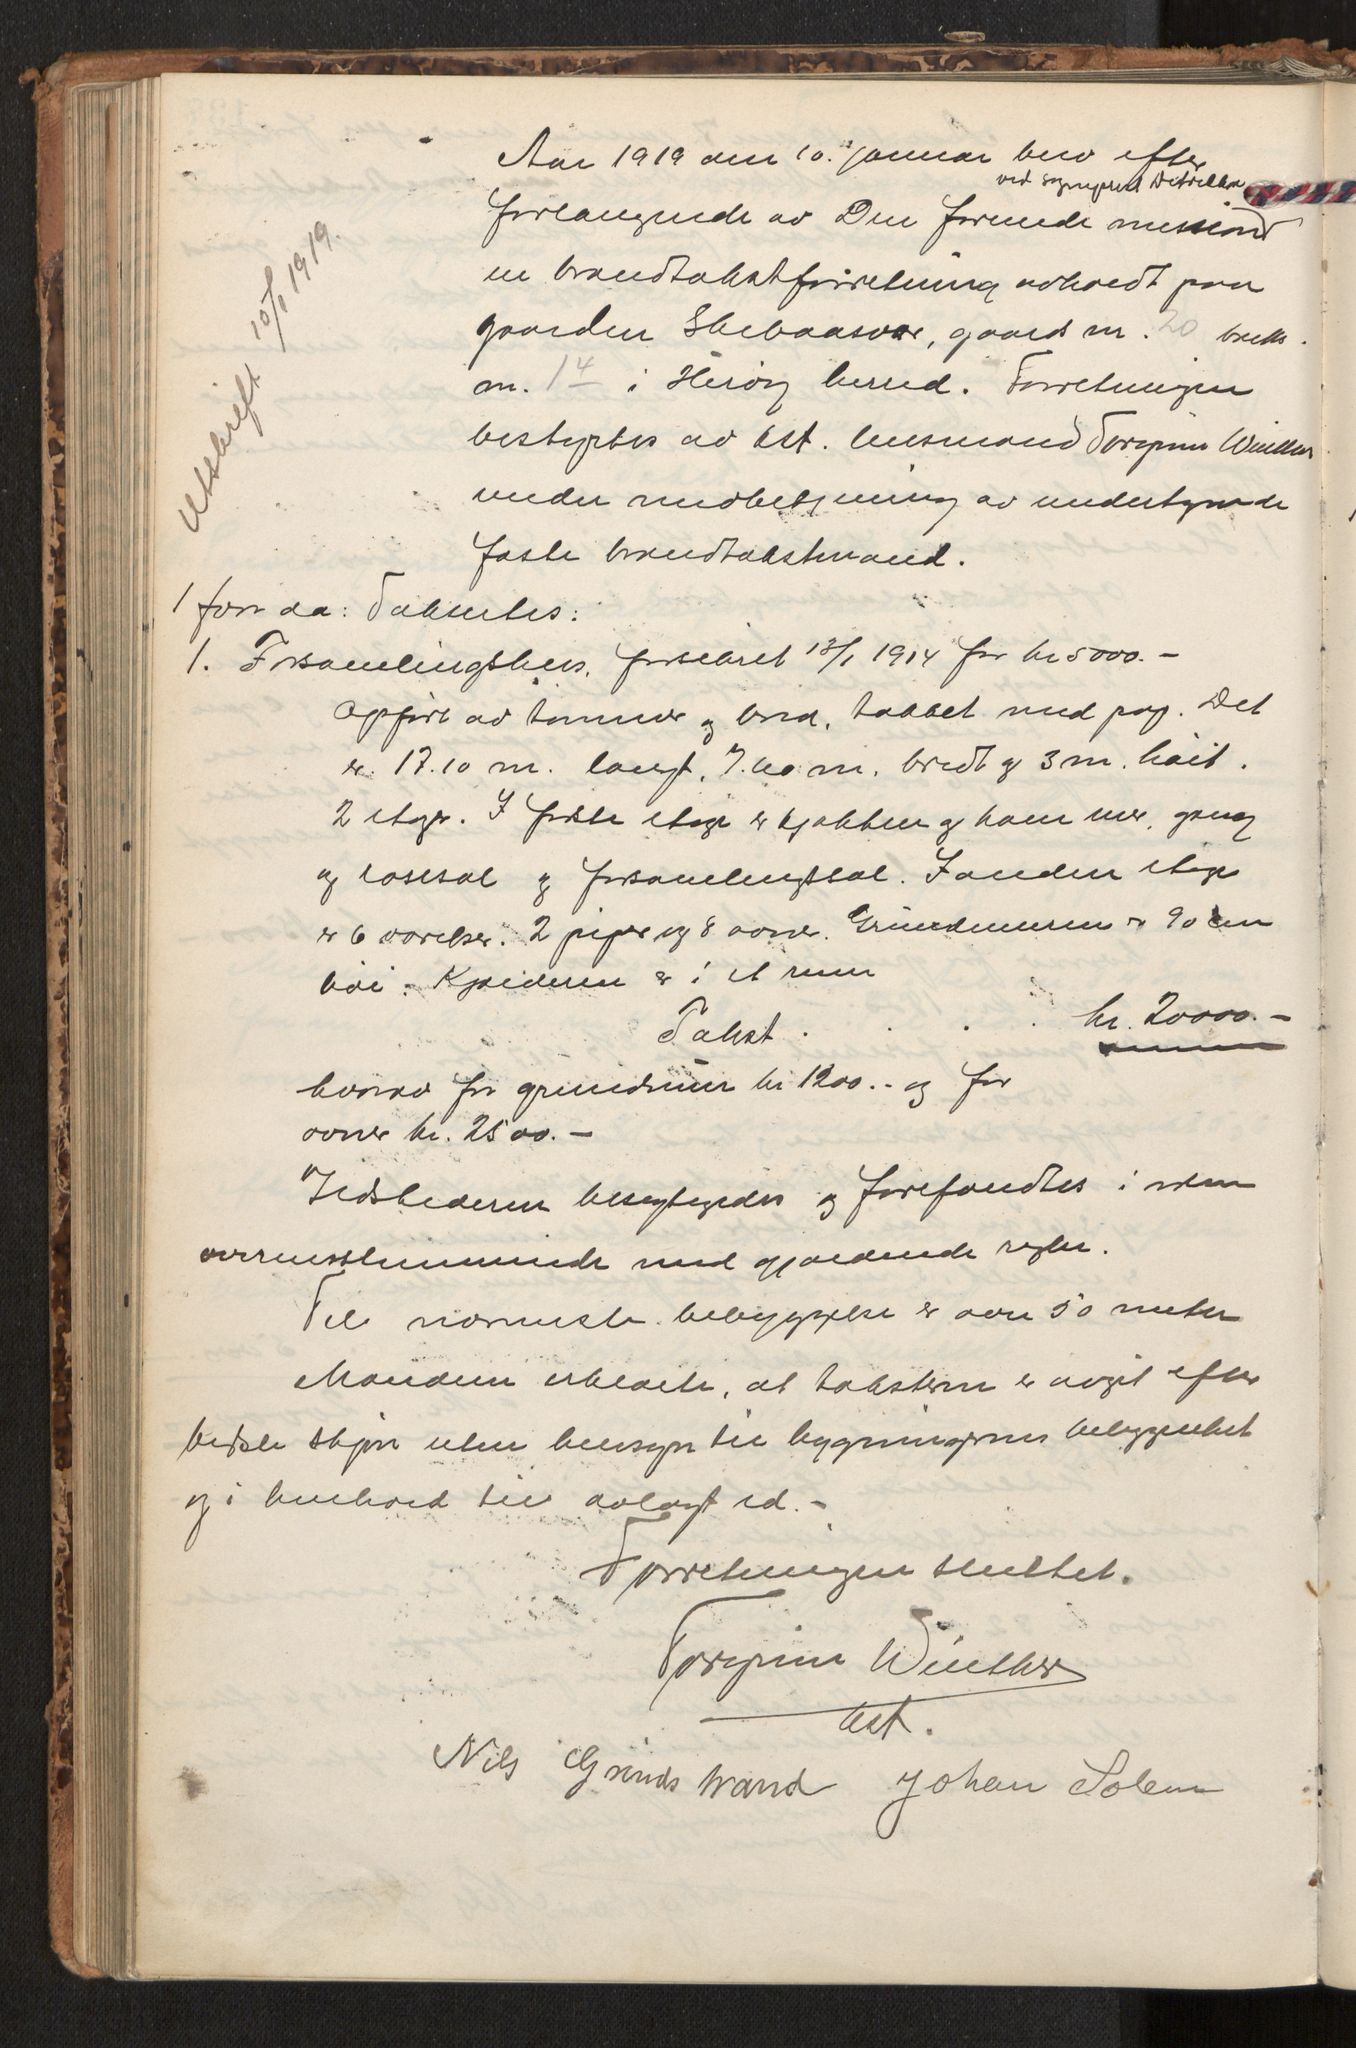 Utskrift 10/1 1919.
Aar 1919 den 10. januar blev efter
ved sogneprest
forlangende av Den forende mission
en brandtakstforretning avholdt paa
gaarden Skebaasvær, gaards nr. 20 bruks
nr. 14 i Herøy herred. Forretningen
bestyrtes av kst. lensmand Torginn Winther
under medbetjening av undertegnede
faste brandtakstmænd.
1 forr da: Taksertes:
1. Forsamlingshus, forsikret 13/1 1914 for kr 5000.-
Opført av tømmer og bord, takket med pap. Det
er 17.10 m. langt, 7.60 m. bredt og 3 m. høit.
2 etager. I første etage er kjøkken og kammer, gang
og læsesal og forsamlingssal. I anden etage
er 6 værelser. 2 piper og 8 ovner. Grundmuren er 90 cm
høi. Kjælderen er i et rum
Takst . . . . kr. 20000.-
hvorav for grundmur kr 1200.- og for
ovner kr. 2500.-
Ildstederne besigtigedes og forefandtes i orden
overensstemmende med gjældende regler.
Til nærmeste bebyggelse er over 50 meter
Mændene erklærte, at taksterne er avgit efter
bedste skjøn uten hensyn til bygningernes beliggenhet
og i henhold til avlagt ed.-
Forretningen sluttet.
Torginn Winther
kst.
Nils Grindstrand Johan Solem